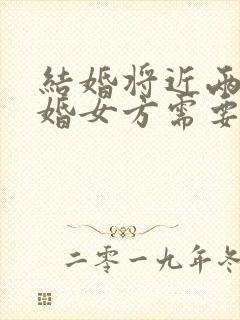 結婚将近兩
婚女方需要
二零一九年冬